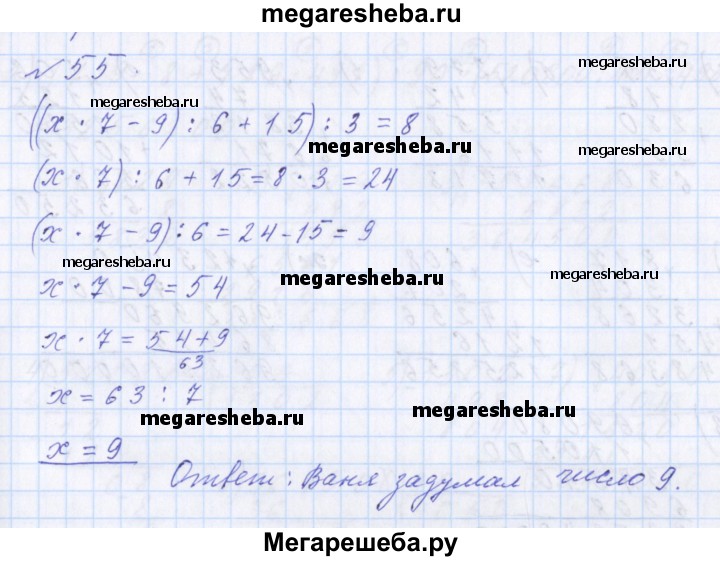 megaresheba.ru
№ 55.
megaresheba.ru
megaresheba.ru
((x · 7 - 9) : 6 + 15) : 3 = 8
megaresheba.ru
(x · 7) : 6 + 15 = 8 · 3 = 24
(x · 7 - 9) : 6 = 24 - 15 = 9
megaresheba.ru
megaresheba.ru
megaresheba.ru
x · 7 - 9 = 54
x · 7 = 54 + 9
63
x = 63 : 7
megaresheba.ru
megaresheba.ru
x = 9
Ответ: Ваня задумал число 9.
Мегарешеба.ру